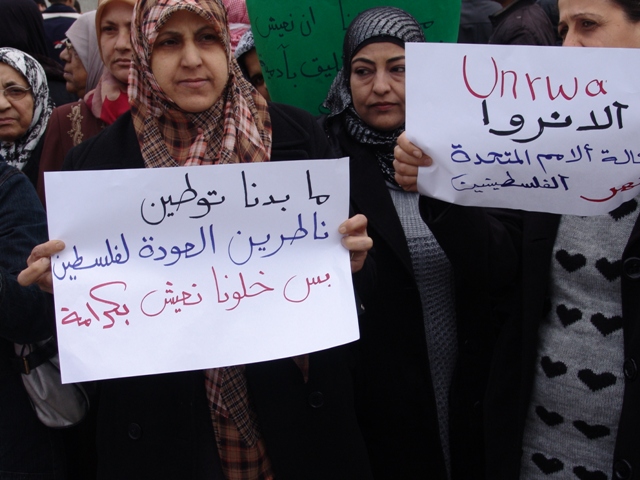 ما بدنا توطين
ناطرين العودة لفلسطين
بس خلونا نعيش بكرامة
Unrwa
الانروا
الامم المتحدة
الفلسطينين
ان نعيش